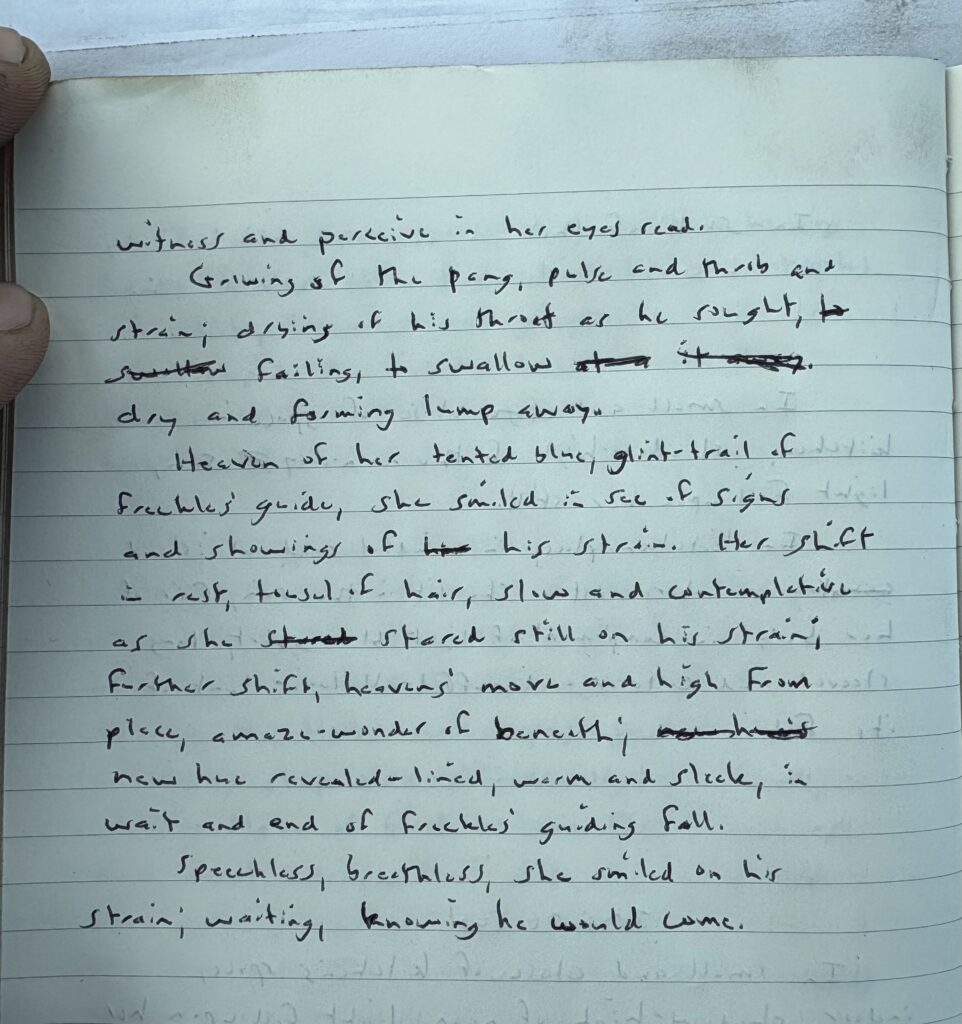 witness and perceive in her eyes read.
Growing of the pang, pulse and throb and
strain; drying of his throat as he sought, to
swallow failing, to swallow it away.
dry and forming lump away.
Heaven of her tented blue, glint-trail of
freckles' guide, she smiled in see of signs
and showings of his strain. Her shift
in rest, tousel of hair, slow and contemplative
as she stared stared still on his strain;
further shift, heavens' move and high from
place, amaze-wonder of beneath;
new hue revealed-lined, warm and sleek, in
wait and end of freckles' guiding fall.
Speechless, breathless, she smiled on his
strain; waiting, knowing he would come.